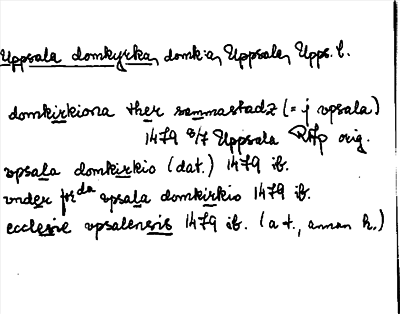 Uppsala domkyrka, domk:a, Uppsala, Upps. l.
domkirkiona ther sammastadz (= j vpsala)
1479 8/7 Uppsala RAp orig.
vpsala domkirkio (dat.) 1479 ib.
vnder for da vpsala domkirkio 1479 ib.
ecclesie vpsalensis 1479 ib. (a t., annan h.)